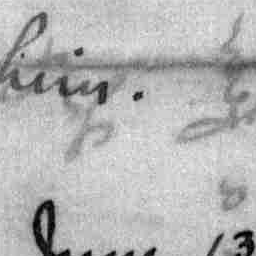 him.
June 13